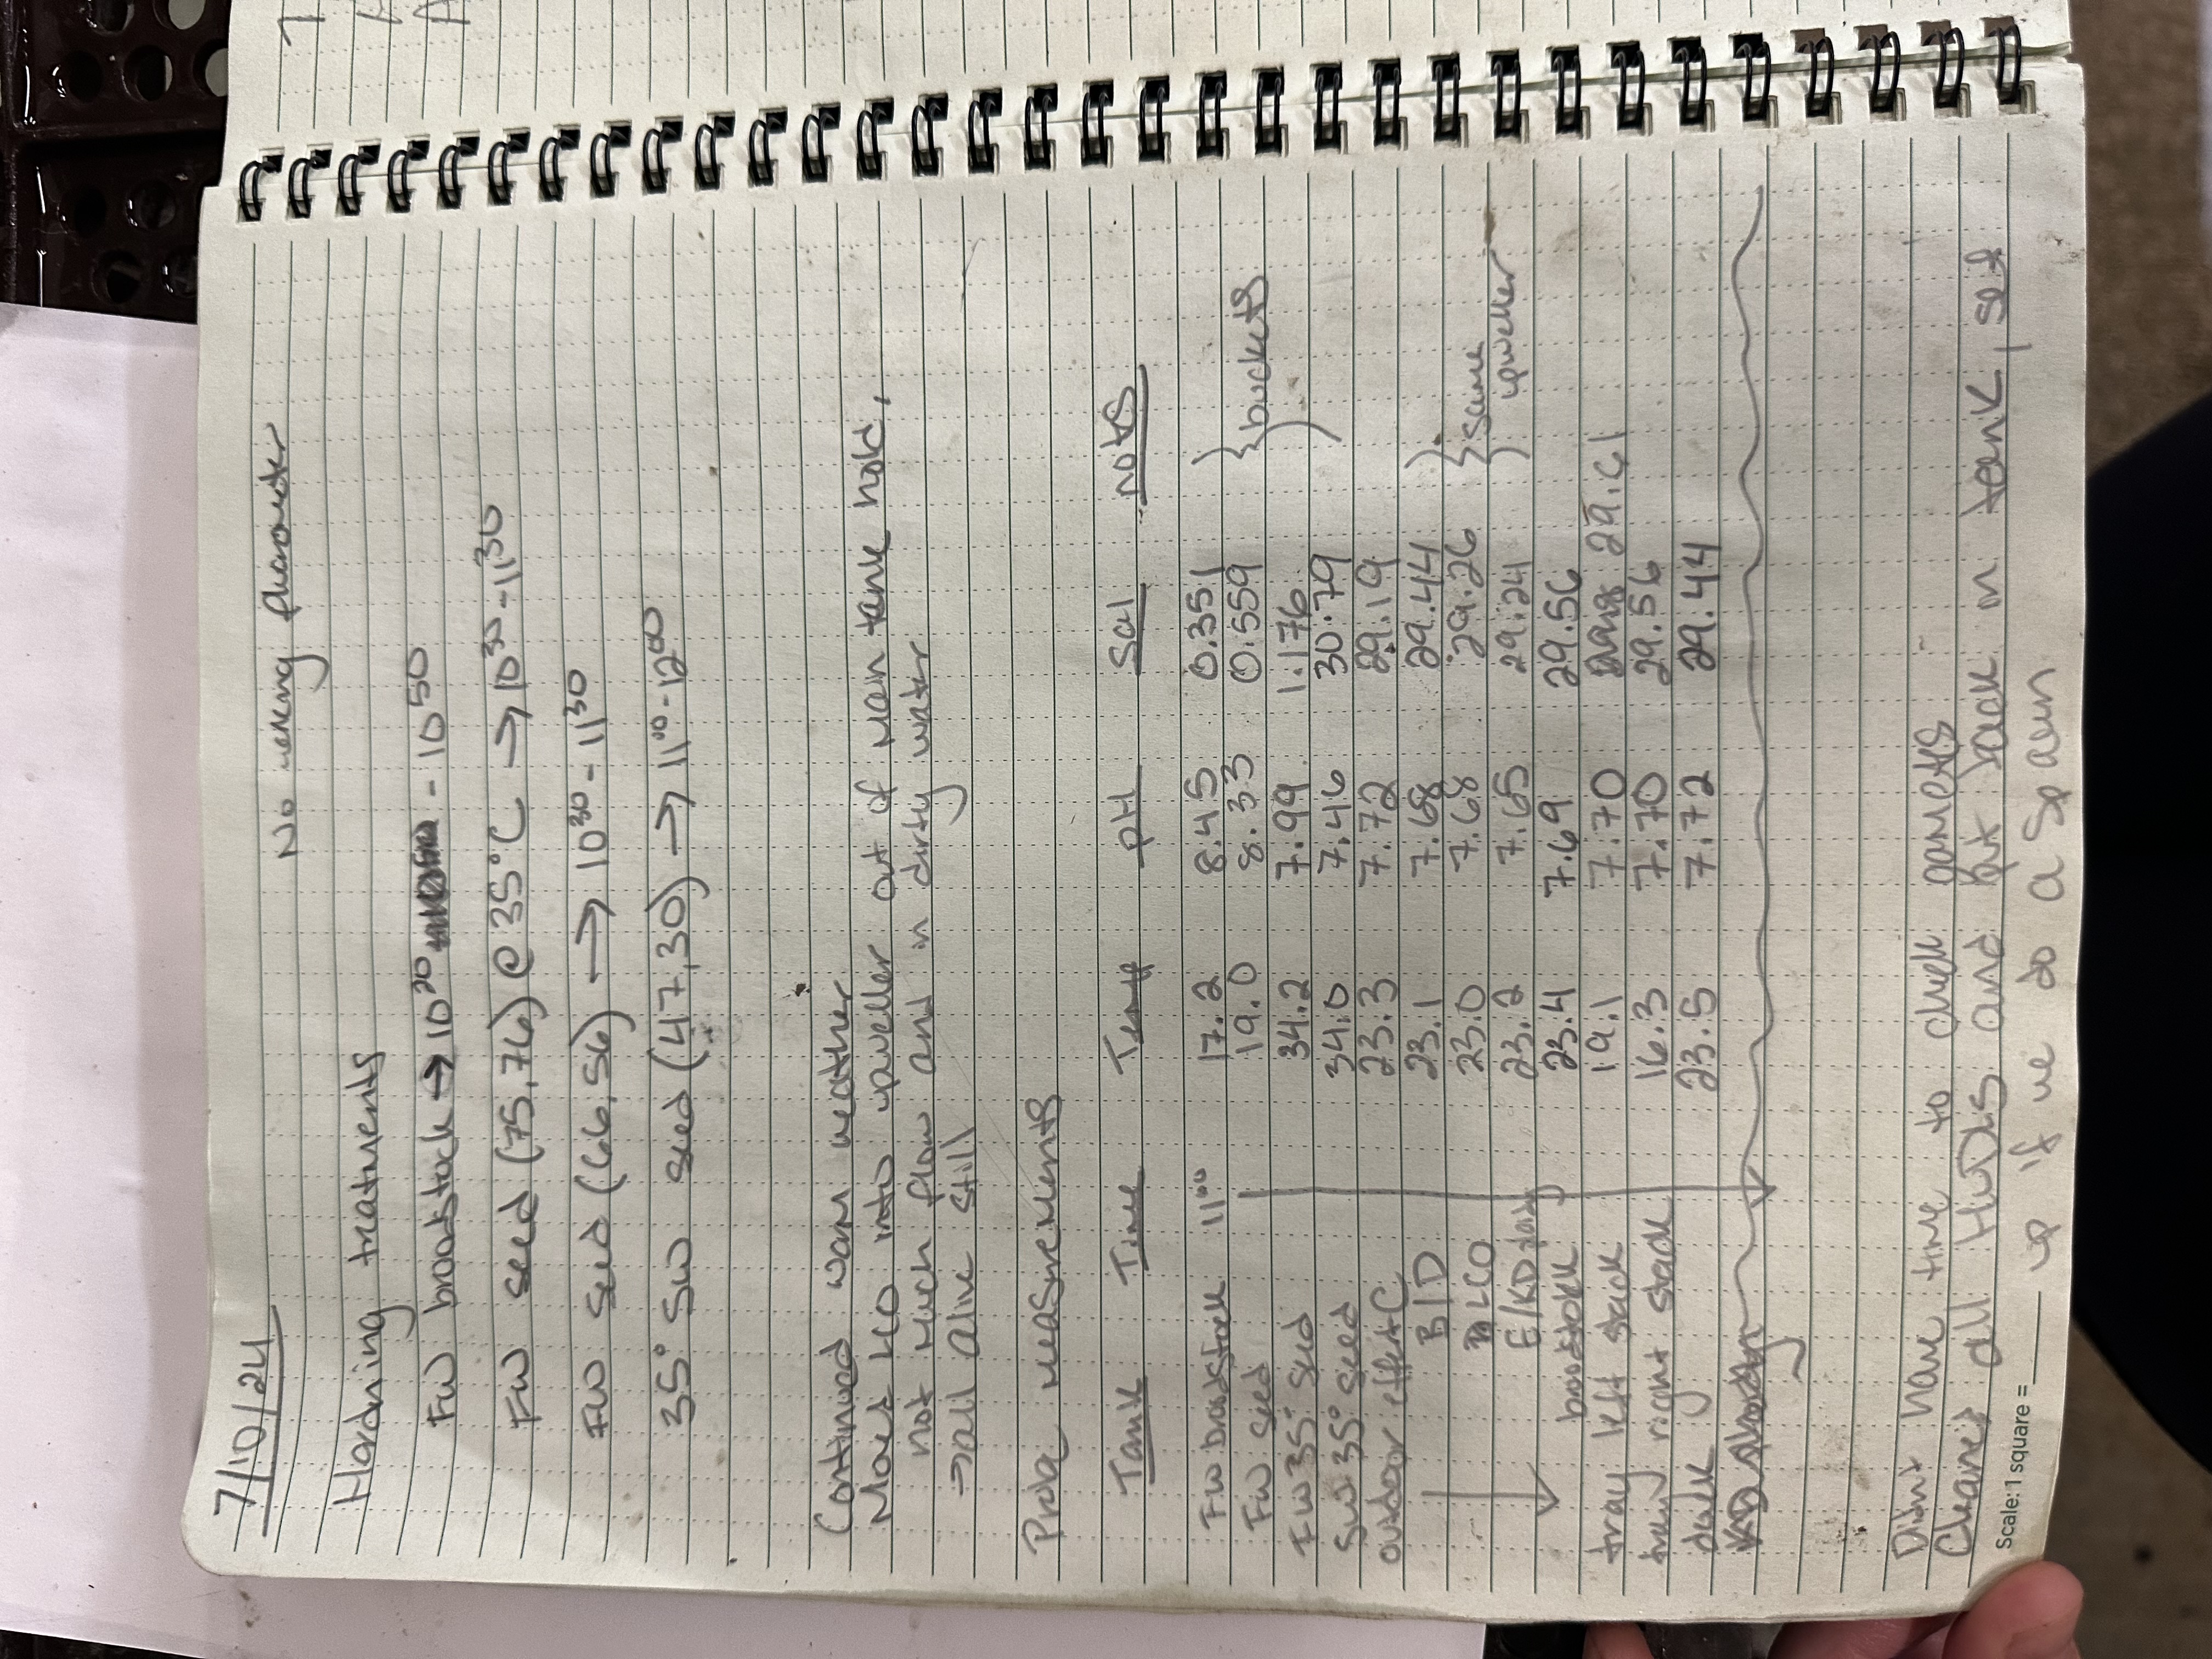 7/10/24
No working fluorometer
Hardning tratments
FW broodstock → 10²⁰ - 10⁵⁰
FW seed (75,76) @ 35°C → 10³⁰-11³⁰
FW seed (66,56) → 10³⁰-11³⁰
35° SW seed (47,30) → 11⁰⁰-12⁰⁰
Continued warm weather
Moved LCO into upweller out of main tank hold,
not much flow and in dirty water
→ all alive still
Probe measurements
Tank Time Temp pH Sal notes
FW broodstock 11⁰⁰ 17.2 8.45 0.351
FW seed 19.0 8.33 0.559 buckets
FW 35° seed 34.2 7.99 1.176
SW 35° seed 34.0 7.46 30.79
outdoor effort C 23.3 7.72 29.19
B/D 23.1 7.68 29.44
LCO 23.0 7.68 29.26 same
E/KD 23.2 7.65 29.24 upweller
broodstock 23.4 7.69 29.56
tray left stack 19.1 7.70 29.61
tray right stack 16.3 7.70 29.56
dock 23.5 7.72 29.44
Didn't have time to check gametes
Cleaned all HuDLs and put back in tank, set
Scale: 1 square =
up if we do a spawn